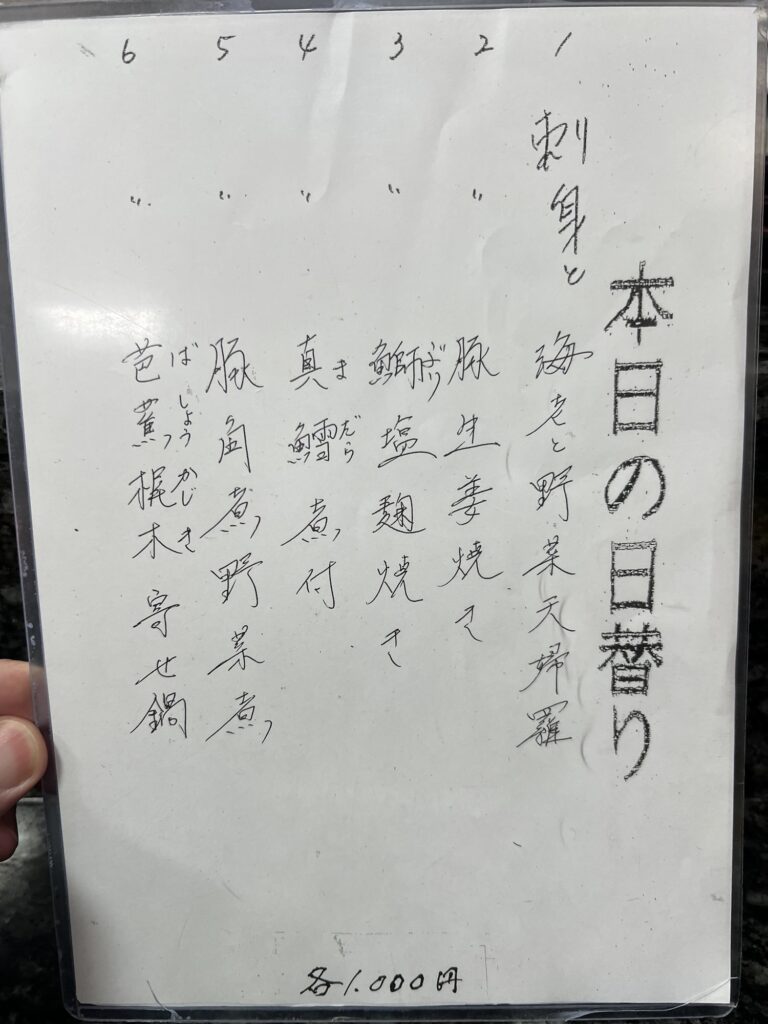 本日の日替り
1 刺身と 海老と野菜天婦羅
2 〃 豚生姜焼き
3 〃 鰤ぶり塩麹焼き
4 〃 真鱈まだら煮付
5 〃 豚角煮野菜煮
6 〃 芭蕉梶木ばしょうかじき寄せ鍋
各1.000円